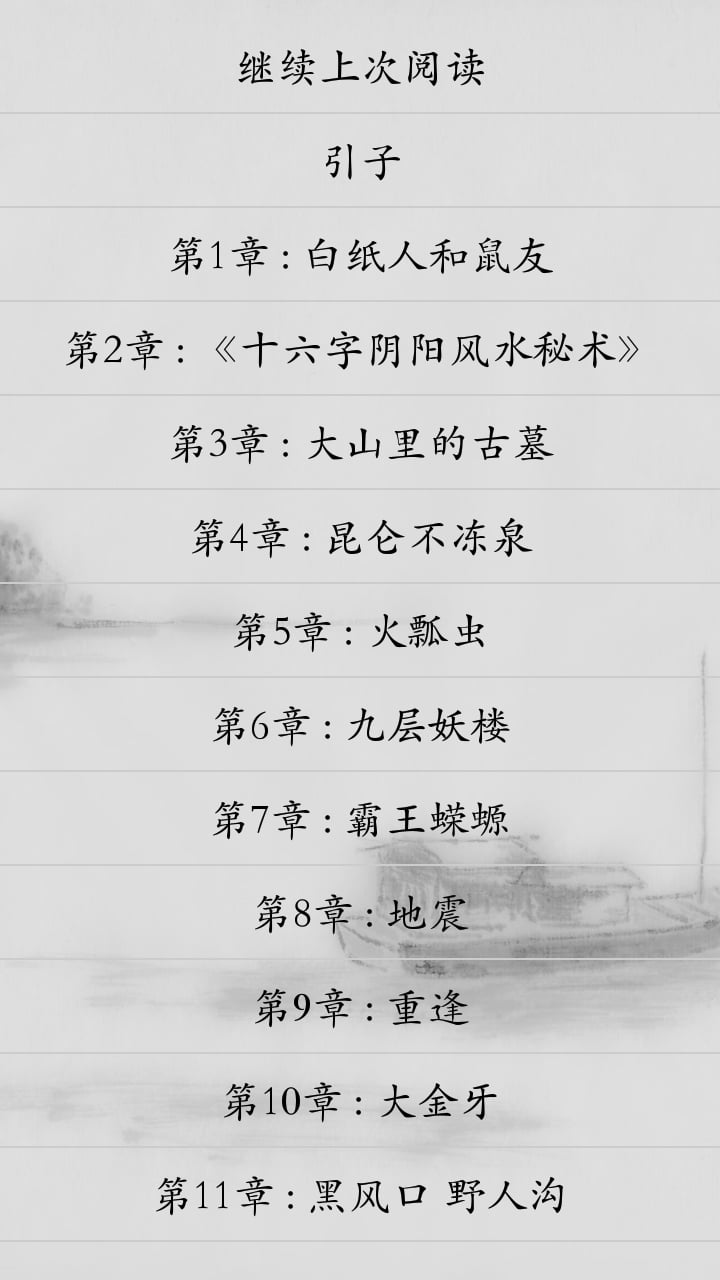 继续上次阅读
引子
第1章：白纸人和鼠友
第2章：《十六字阴阳风水秘术》
第3章：大山里的古墓
第4章：昆仑不冻泉
第5章：火瓢虫
第6章：九层妖楼
第7章：霸王蝾螈
第8章：地震
第9章：重逢
第10章：大金牙
第11章：黑风口 野人沟